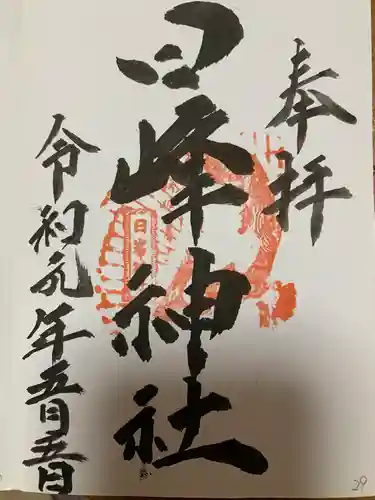 奉拝
日峰神社
令和元年五月五日
日峯
29